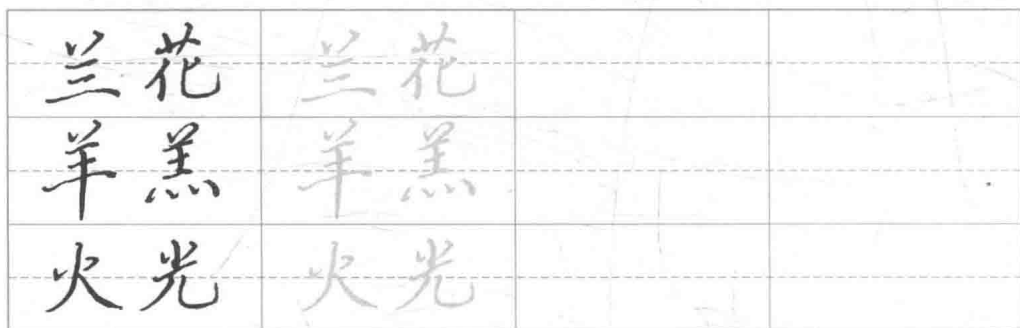 兰花 兰花
羊羔 羊羔
火光 火光